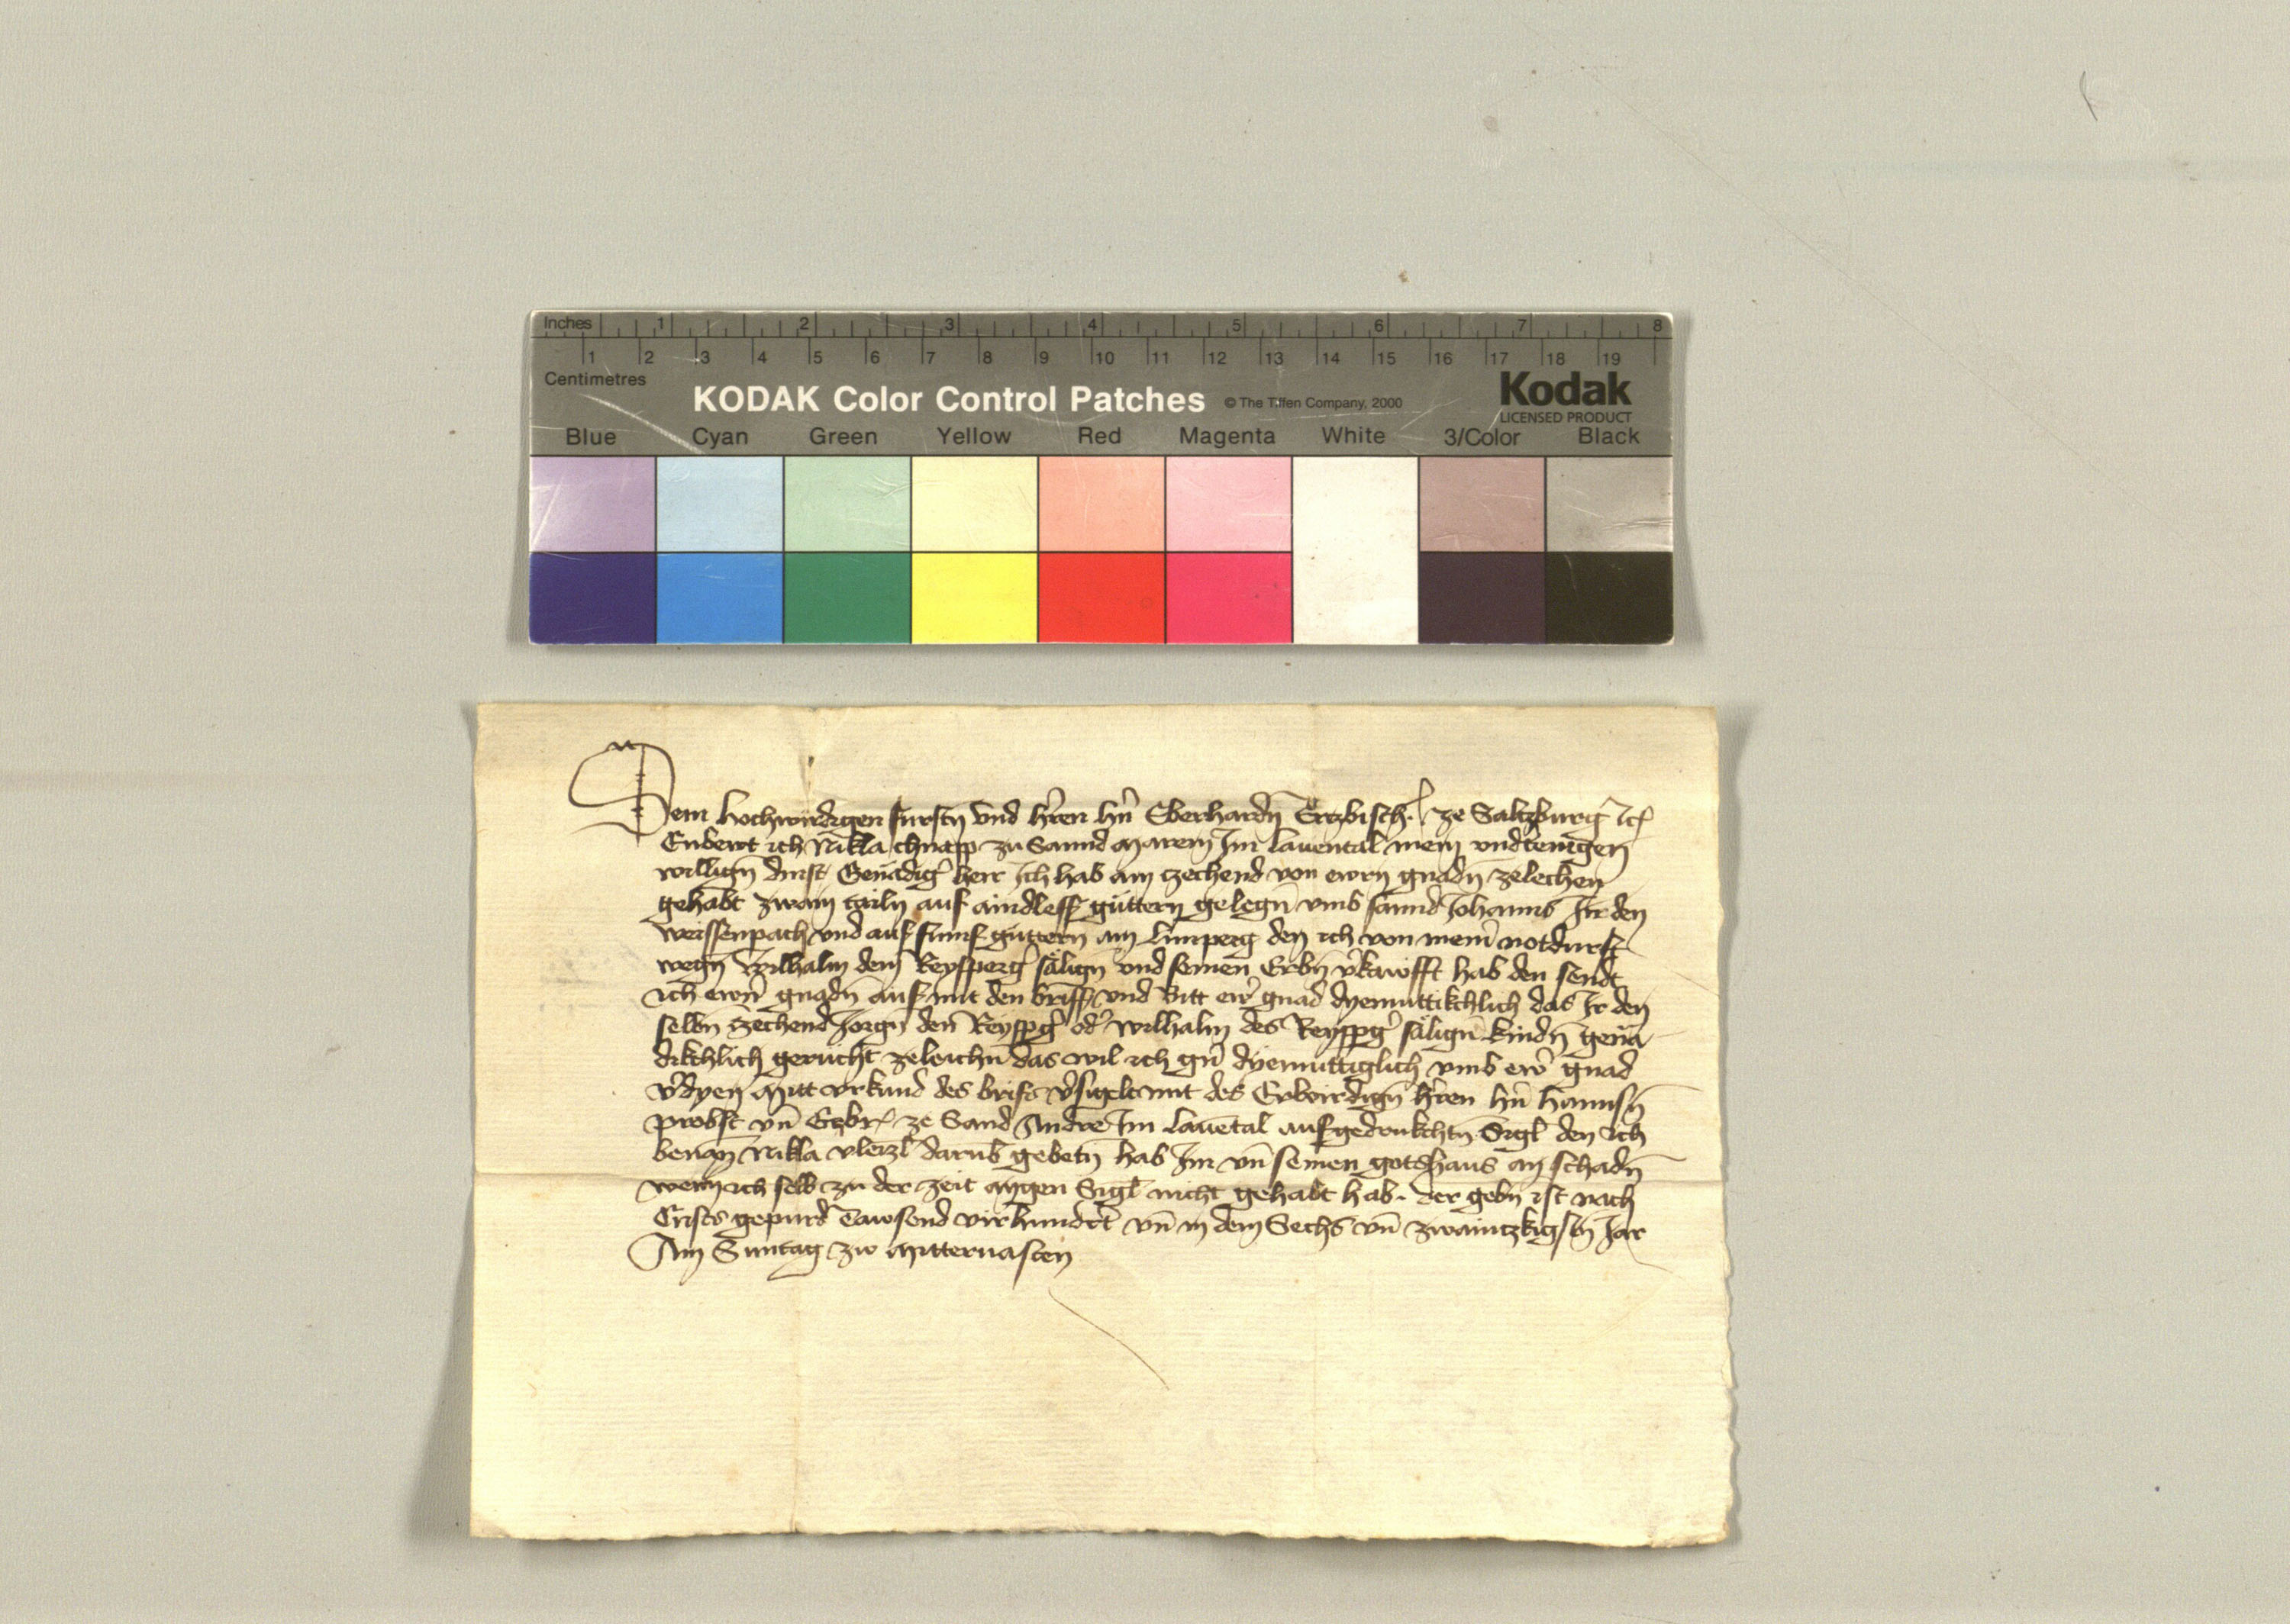 Inches 1 2 3 4 5 6 7 8
1 2 3 4 5 6 7 8 9 10 11 12 13 14 15 16 17 18 19
Centimetres
KODAK Color Control Patches © The Tiffen Company, 2000 Kodak
LICENSED PRODUCT
Blue Cyan Green Yellow Red Magenta White 3/Color Black
Dem hochwirdigen furstn̄ vnd h̓ren hn̄ Eberhardn̄ Erczbisch. ze Saltzburg
Enbewt ich Nikla zu Sannd Marein Im lauental mein vndtenigen
willign̄ dinst Genädig̓ herr Ich hab ain zechend von ewrn gnadn̄ zelechen
gehabt zwain tailn auf aindleff güttern gelegn̄ vmb sannd Johanns In den
weissenpach vnd auf fumf güttern am limperg den ich von mein̄ notdurft
wegn̄ wilhalm dem Reysperg̓ sälign̄ vnd seinen Erbn̄ v̓kawfft hab den sendt
ich ewrn̄ gnadn̄ auf mit den briff vnd Bitt ew̓ gnad dyemuttikchlich das Ir den
selbn̄ zechend Jorgn̄ den Reyspg̓ od̓ wilhalm des Reyspg̓ sälign̄ kindn̄ genä
dikchlich gerücht zeleichn̄ das wil ich gn̄ dyemuttiglich vmb ew̓ gnad
v̓dyen Mit vrkund des brifs v̓sigelt mit des Erbirdign̄ h̓ren hn̄ hannsn̄
probst vn̄ ze Sand Andre Im lauetal aufgedrukchtn̄ Sigl den ich
benan̄ Nikla darub gebetn̄ hab Im vn̄ seinen gotshaus an schadn̄
wenn ich selb zu der zeit aygen Sigl nicht gehabt hab. der gebn̄ ist nach
Crists gepurd Tawsend virhundert vn̄ in dem Sechs vn̄ zwaintzkigstn̄ Jar
Am Suntag zw Mitteruasten